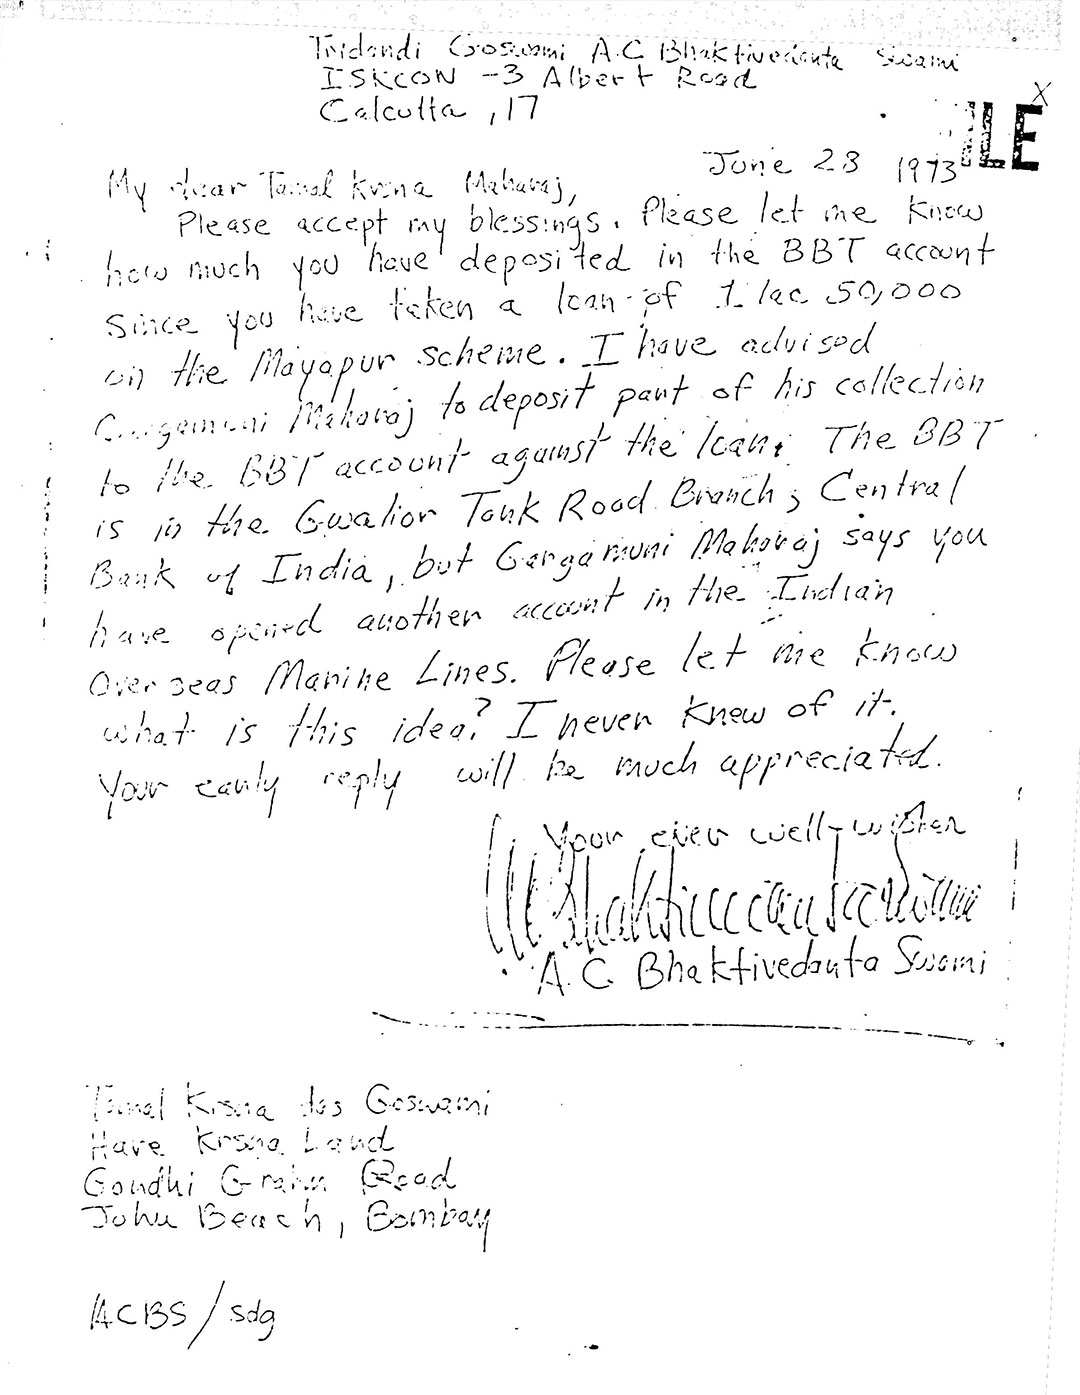 Tridandi Goswami A.C Bhaktivedanta Swami
ISKCON -3 Albert Road
Calcutta, 17
X
ILE
June 28 1973
My dear Tamal Krsna Maharaj,
Please accept my blessings. Please let me know
how much you have deposited in the BBT account
since you have taken a loan of 1 lac 50,000
on the Mayapur scheme. I have advised
Gargamuni Maharaj to deposit part of his collection
to the BBT account against the loan. The BBT
is in the Gwalior Tank Road Branch, Central
Bank of India, but Gargamuni Maharaj says you
have opened another account in the Indian
Overseas Marine Lines. Please let me know
what is this idea? I never knew of it.
Your early reply will be much appreciated.
Your ever well-wisher
A.C. Bhaktivedanta Swami
A.C Bhaktivedanta Swami
Tamal Krsna das Goswami
Hare Krsna Land
Gandhi Gram Road
Juhu Beach, Bombay
ACBS/sdg